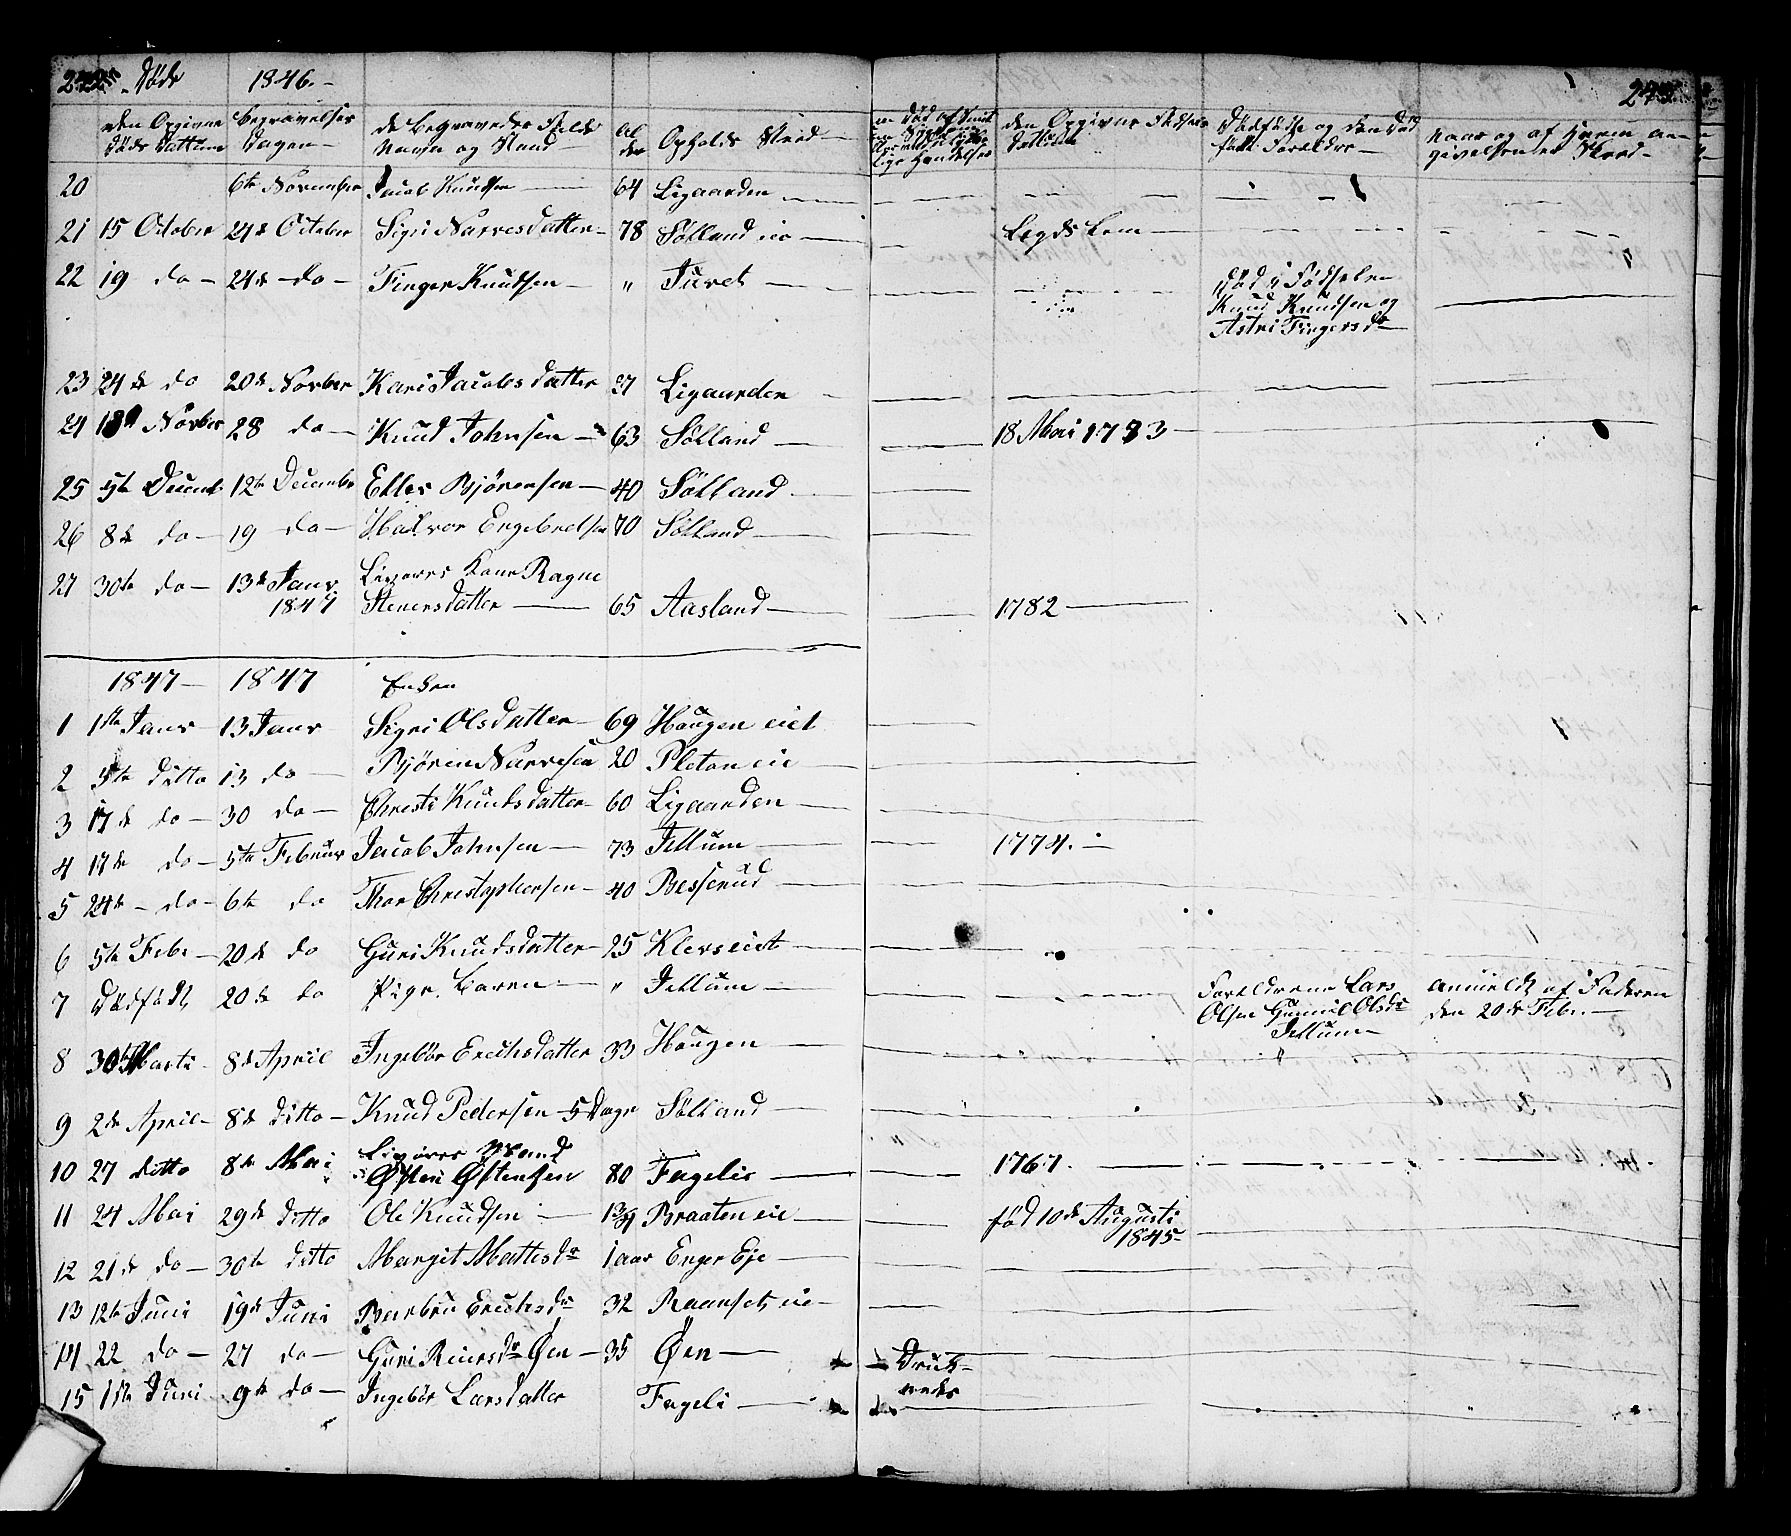 Døde 1846.
den Opgivne Begravelses de Begravedes Fulde Al Opholds Sted den Opgivne Fødsels Dødfødte og den Død naar og af hvem an-
Døds Dattum Dagen Navn og Stand der Dattum født Foreldre givelsen er Skeed
20 6te November Jacob Knudsen 64 Ligaarden
21 15 October 24de October Sigri Narvesdatter 78 Sølland eie Legds Lem
22 19 do 24de do Finger Knudsen " Juvet Død i Fødselen
Knud Knudsen og
Astri Fingersdr
23 24de do 20de Novber Kari Jacobsdatter 27 Ligaarden
24 18 Novber 28 do Knud Johnsen 63 Sølland 18 Mai 1783
25 5te Decemb 12te December Elles Bjørensen 40 Sølland
26 8de do 19 do Halvor Engebretsen 70 Sølland
27 30te do 13de Janr Kone Ragne
1847 Steners datter 65 Aasland 1782
1847 1847 Enken
1 1ste Janr 13 Janr Sigri Olsdatter 69 Haugen eiet
2 5te ditto 13 do Bjøren Narvesen 20 Pleten eie
3 17de do 30 do Christi Knudsdatter 60 Ligaarden
4 17de do 5te Februar Jacob Johnsen 73 Jellum 1774.
5 24de do 6te do Thor Christophersen 40 Besserud
6 5te Febr 20de do Guri Knudsdatter 25 Klevs eiet
7 Dødfødt 20de do Pige Baren " Jellum Foreldrene Lars anmeldt af Faderen
Olsen Gunnil Olsdr den 20de Febr.
Jellum
8 30te Marti 8de April Ingebør Erichsdatter 33 Haugen
9 2de April 8de ditto Knud Pedersen 5 Dage Sølland
10 27 ditto 8de Mai Mand
Østen Østensen 80 Fagelie 1767.
11 24 Mai 29de ditto Ole Knudsen 1 3/4 Braaten eie fød 10de Augusti
1845
12 21de do 30te ditto Margit Mattisdr 1 aar Enger Eje
13 12te Juni 19de Juni Barbru Erichsdr 32 Raansets eie
14 22 do 27 do Guri Reiersdr Øen 35 Øen Druk-
nede
15 Juni 9de do Ingebør Larsdatter Fageli